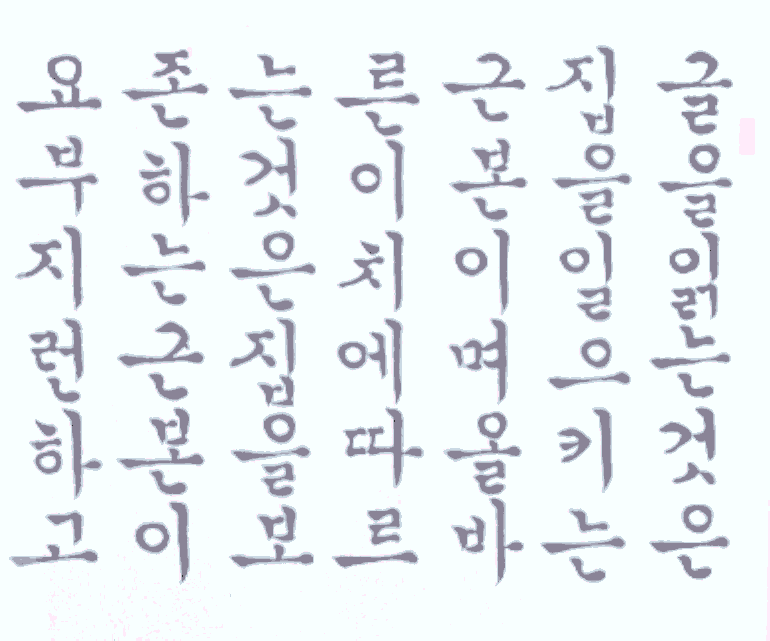 글을읽는것은
집을일으키는
근본이며올바
른이치에따르
는것은집을보
존하는근본이
요부지런하고